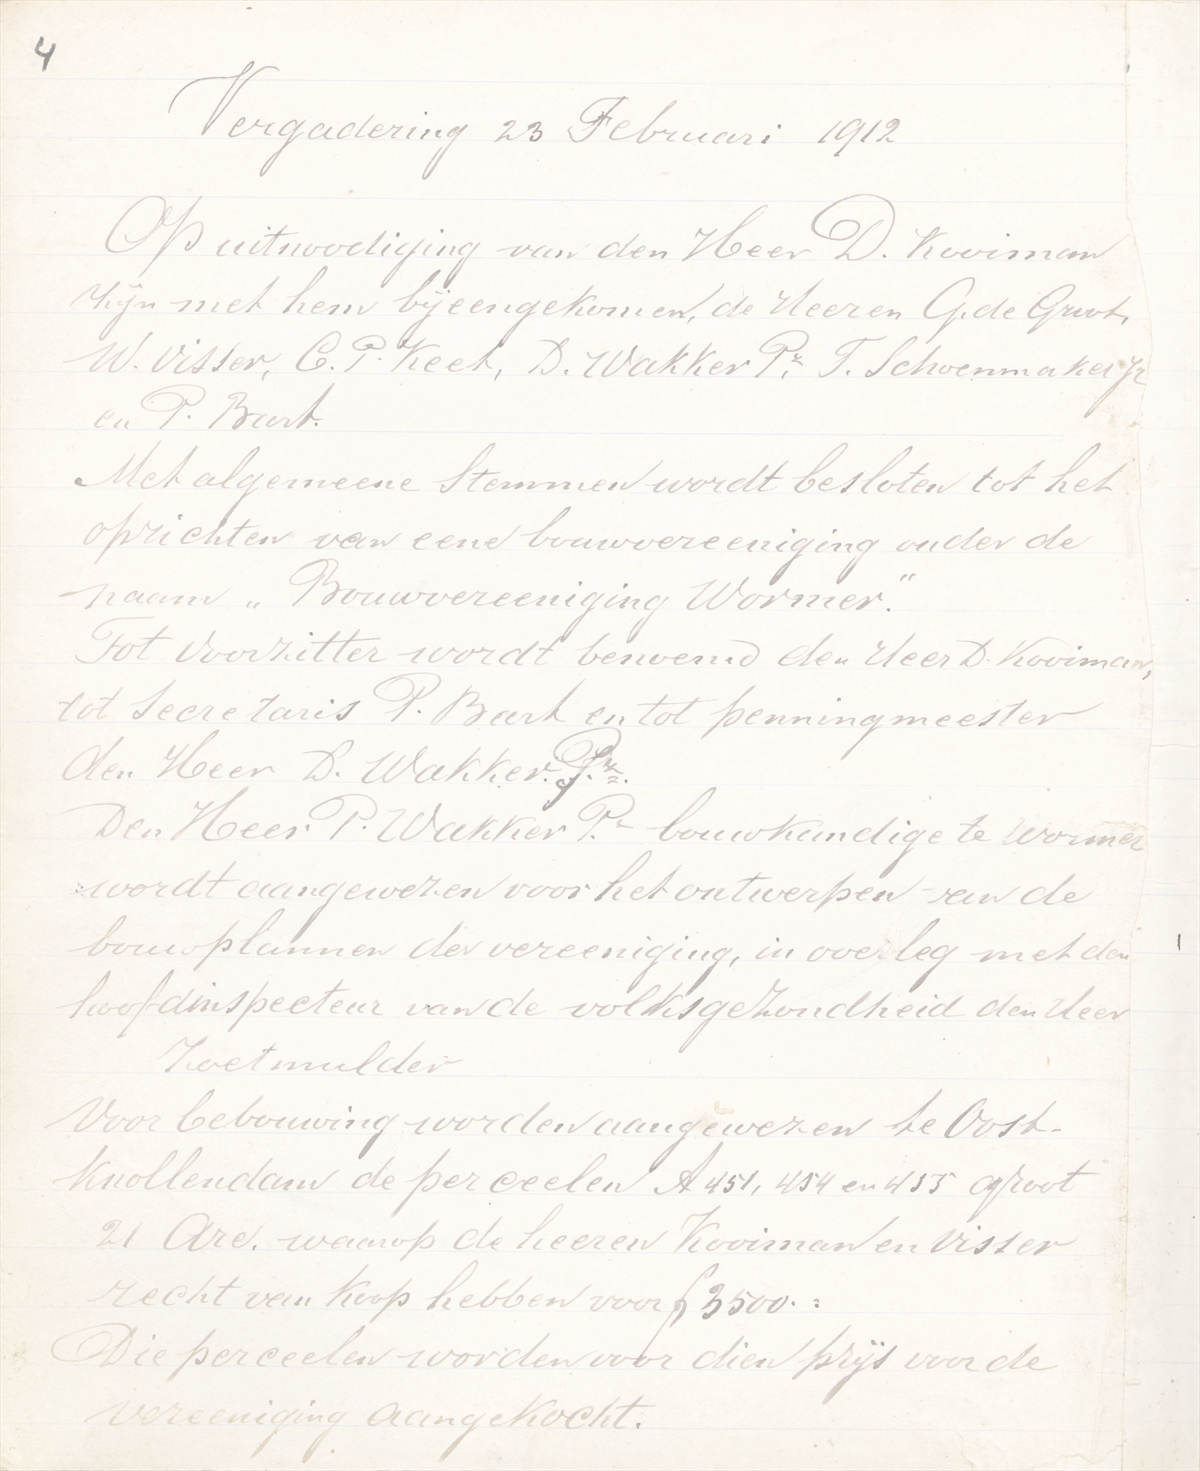 4
Vergadering 23 Februari 1912
Op uitnoodiging van den Heer D. Kooiman
zijn met hem bijeengekomen, de Heeren G. de Groot,
W. Visser, C. P. Keet, D. Wakker Pz. T. Schoenmaker Jz
en P. Bart.
Met algemeene stemmen wordt besloten tot het
oprichten van eene bouwvereeniging onder de
naam „Bouwvereeniging Wormer."
Tot Voorzitter wordt benoemd den Heer D. Kooiman,
tot Secretaris P. Bart en tot penningmeester
den Heer D. Wakker. Pz.
Den Heer P. Wakker Pz bouwkundige te Wormer
wordt aangewezen voor het ontwerpen van de
bouwplannen der vereeniging, in overleg met den
hoofdinspecteur van de volksgezondheid den Heer
Zoetmulder
Voor bebouwing worden aangewezen te Oost-
Knollendam de perceelen A 451, 454 en 455 groot
21 Are. waarop de heeren Kooiman en Visser
recht van koop hebben voor f 3500.=
Die perceelen worden voor dien prijs voor de
vereeniging aangekocht.